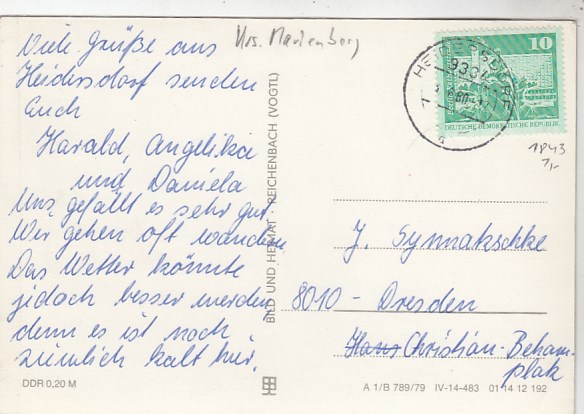 Viele Grüße aus
Heidersdorf senden
Euch
Harald, Angelika
und Daniela
Uns gefällt es sehr gut
Wir gehen oft wandern
Das Wetter könnte
jedoch besser werden,
denn es ist noch
ziemlich kalt hier.
DDR 0,20 M
Krs. Marienberg
BILD UND HEIMAT · REICHENBACH (VOGTL)
10
DEUTSCHE DEMOKRATISCHE REPUBLIK
HEIDERSDORF
1843
1,-
J. Symnakschke
8010 - Dresden
Hans Christian-Beham-
platz
A 1/B 789/79 IV-14-483 01 14 12 192